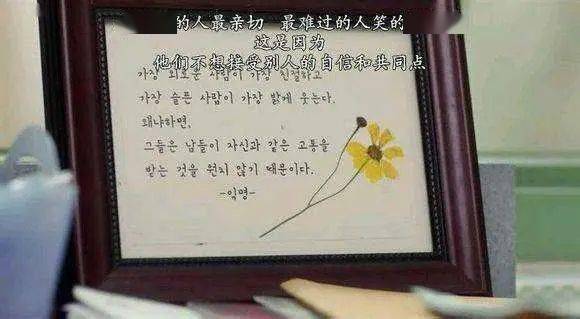 的人最亲切 最难过的人笑的
这是因为
他们不想接受别人的自信和共同点
가장 외로운 사람이 가장 친절하고
가장 슬픈 사람이 가장 밝게 웃는다.
왜냐하면,
그들은 남들이 자신과 같은 고통을
받는 것을 원치 않기 때문이다.
-익명-